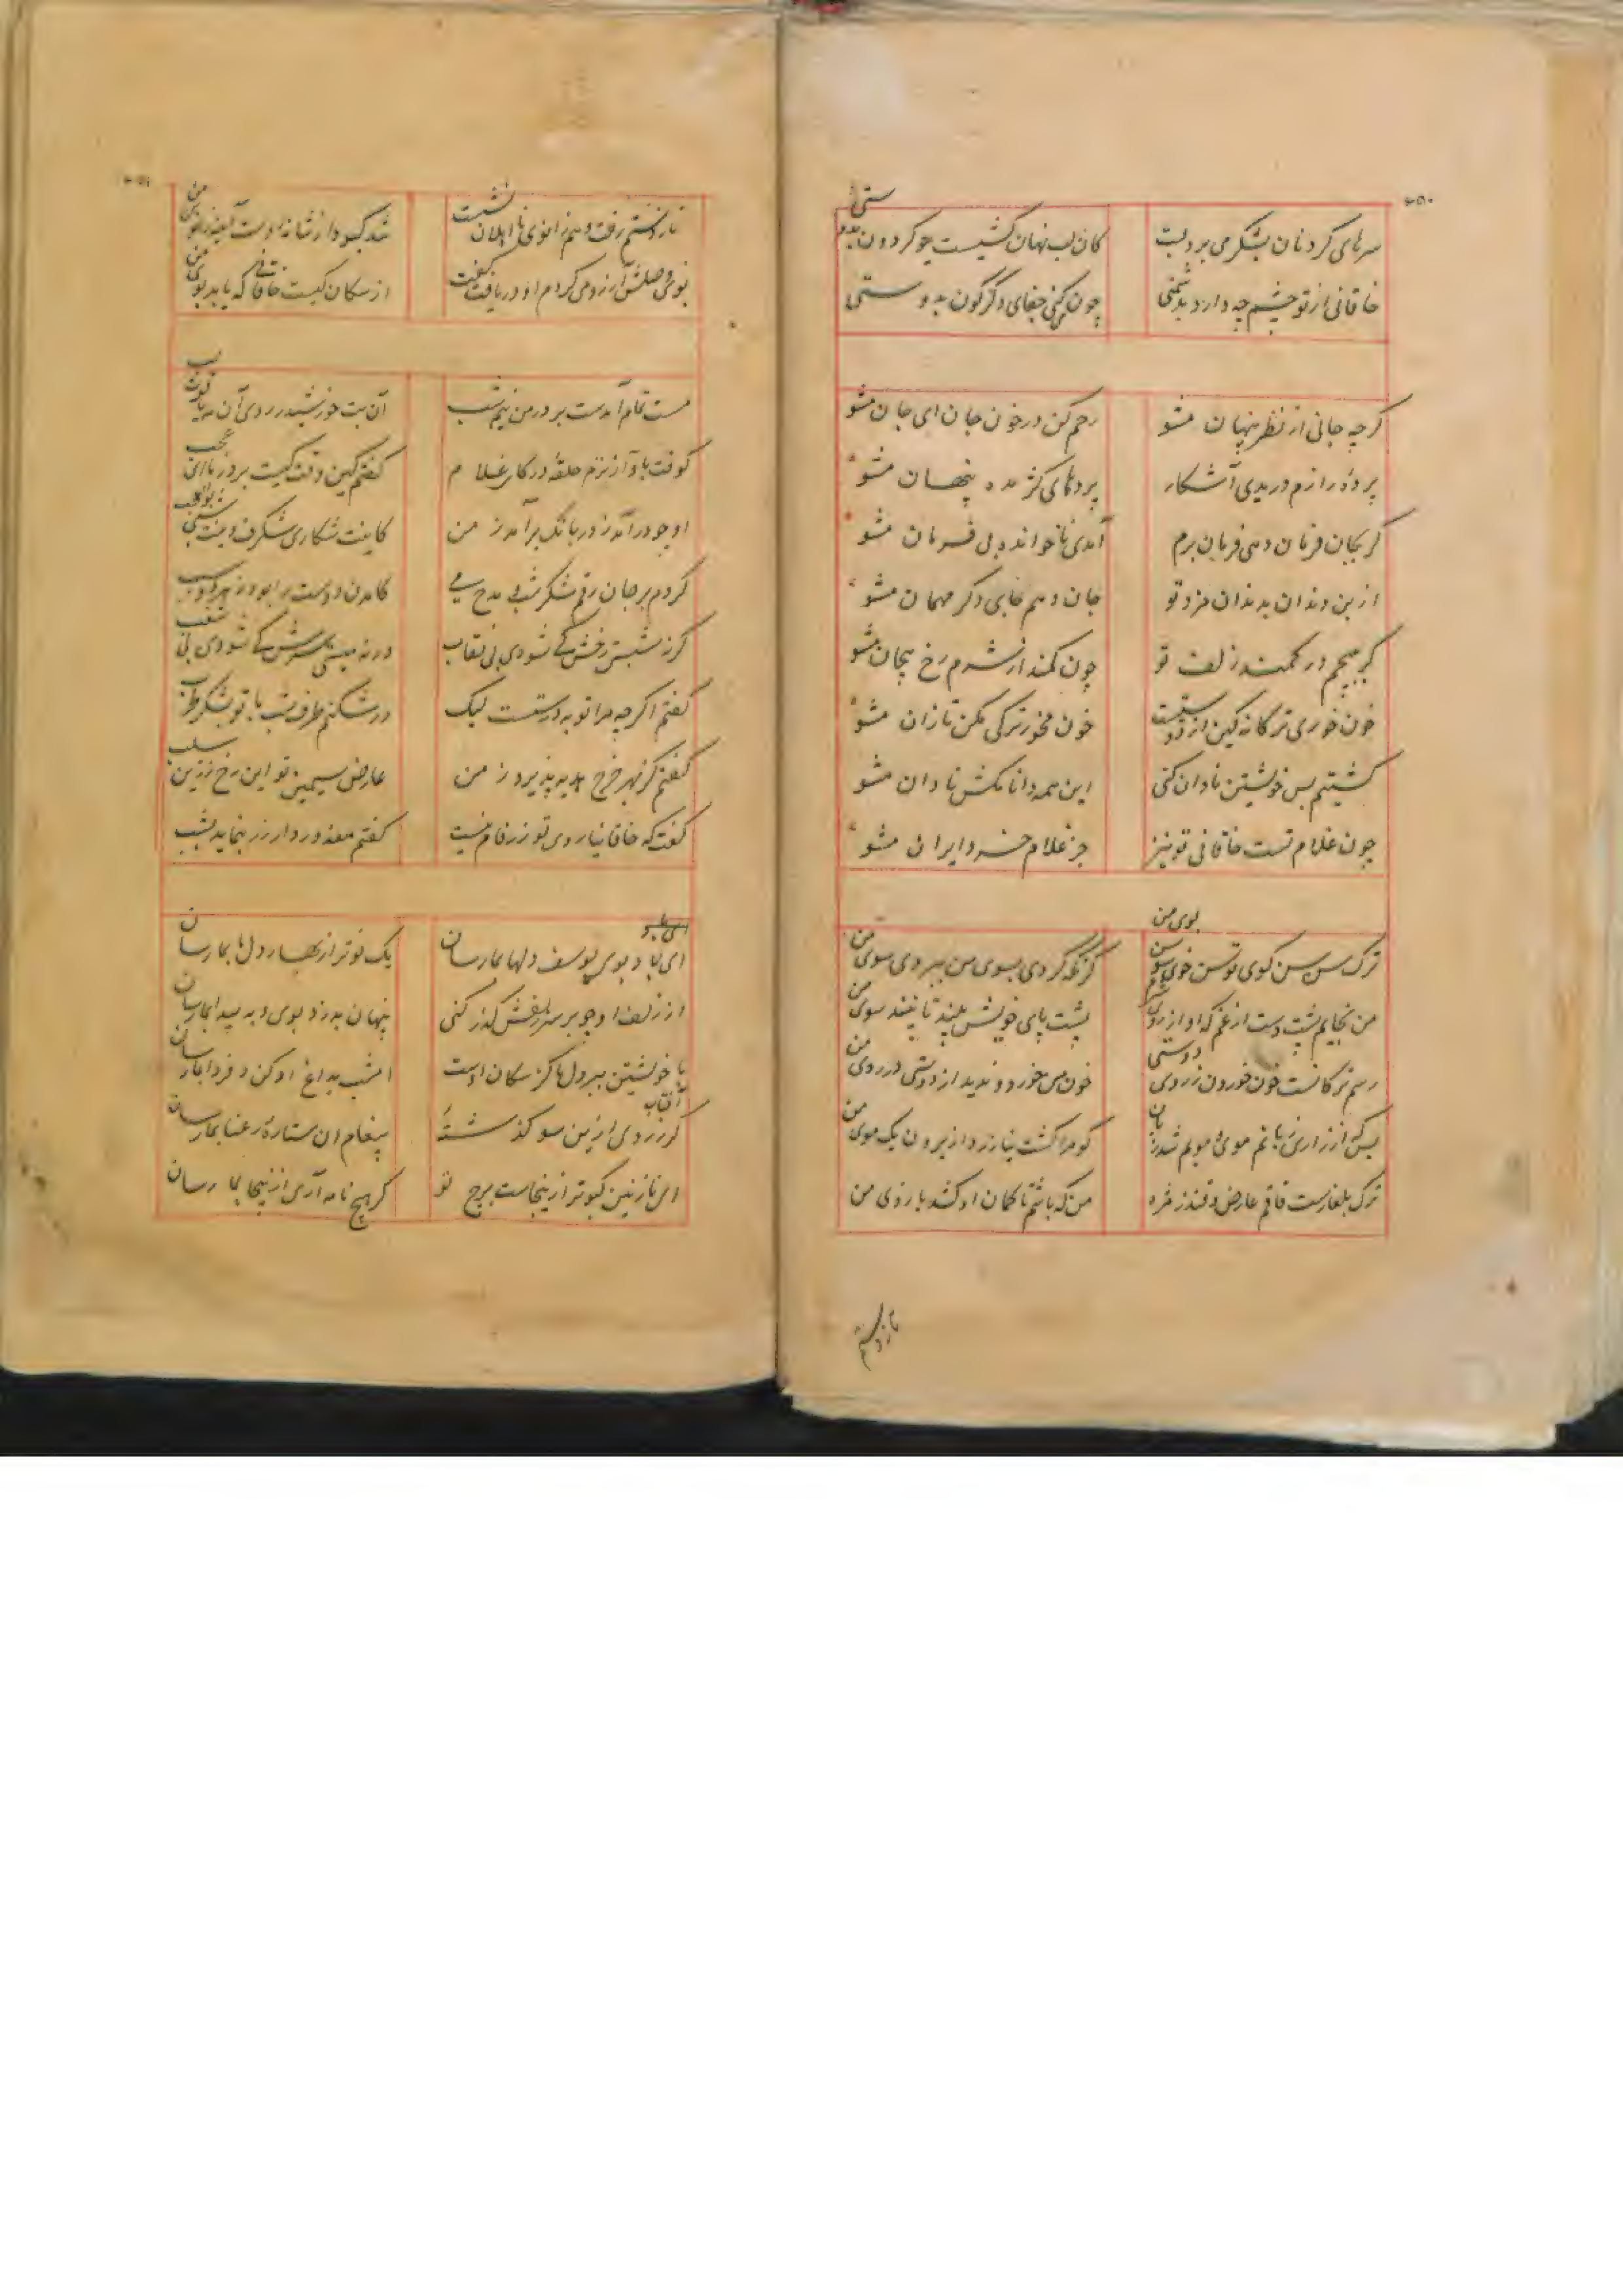 ۴۵۰
سرهای گردنان بشکر می برد لبت کان لب نهان کشیست چو گردون
خاقانی از تو چشم چه دارد بدشمنی چون میکنی جفای دگرگون بدوستی
گرچه جانی از نظر پنهان مشو رحم کن در خون جان ای جان مشو
پردهٔ رازم دریدی آشکار پردهای کژ مده پنهان مشو
گر بجان فرمان دهی فرمان برم آمدی ناخوانده بی فرمان مشو
از بن دندان بدندان مزد تو جان دهم جایی دگر مهمان مشو
گر بپیچم در کمند زلف تو چون کمند از شرم رخ پیچان مشو
خون خوری ترکانه کین از دوستیست خون مخور ترکی مکن تازان مشو
کشیتم پس خویشتن نادان کنی این همه دانا مکش نادان مشو
چون غلام تست خاقانی تو نیز جز غلام خسرو ایران مشو
بوی من
ترک سن سن گوی توسن خوی سوسن گر نگه کردی بسوی من ببردی سوی من
من نخایم پشت دست از غم که او از روی پشت پای خویش بیند تا نبیند سوی من
رسم ترکانست خون خوردن ز روی دوستی خون من خورد و ندید از دوستی در روی من
بس که از زاری زبانم موی و مویم شد زبان کو مرا کشت و نیازرد از برون یک موی من
ترک بلغارست قاقم عارض و قندز مژه من که باشم تا کمان او کشد بازوی من
نازنینم
۴۵۱
رفت و هم زانوی نااهلان نشست شد کبود از شانه دست آینه زانوی من
بوی وصلش آرزو می کردم او دریافت گفت از سگان کیست خاقانی که یابد بوی من
مست تمام آمدست بر در من نیم شب آن بت خورشید روی آن مه یاقوت لب
کوفت بآواز نرم حلقهٔ در کای غلام گفتم کین وقت کیست بر در ما ای عجب
او چو درآمد ز در بانگ برآمد ز من کاینت شکاری شگرف وینت شبی بوالعجب
کردم بر جان رقم شکر شب و مدح می کامدن دوست را بود ز هر دو سبب
گر نه شبستی رخش کی شودی بی نقاب ور نه میستی سرش کی شودی پی شغب
گفتم اگر چه مرا توبه درستست لیک درشکنم طرف شب با تو بشکر طرب
گفتم کز بهر خرج هدیه پذیرد ز من عارض سیمین تو این رخ زرین سلب
گفت که خاقانیا روی تو زرفام نیست گفتم معذور دار زر ننماید بشب
ای باد
ای باد بوی یوسف دلها بما رسان یک نوبر از نهال دل ما بما رسان
از زلف او چو بر سر زلفش گذر کنی پنهان بدزد بوی و به پیدا بما رسان
با خویشتن ببر دل ما کز سگان اوست امشب بداغ او کن و فردا بما رسان
گر زروی ازین سو گذشته پیغام آن ستارهٔ رعنا بما رسان
ای نازنین کبوتر از اینجاست برج تو گر هیچ نامه آری از آنجا بما رسان